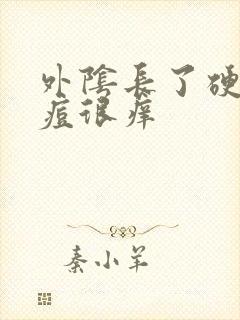 外陰長了硬
痘很癢
秦小羊